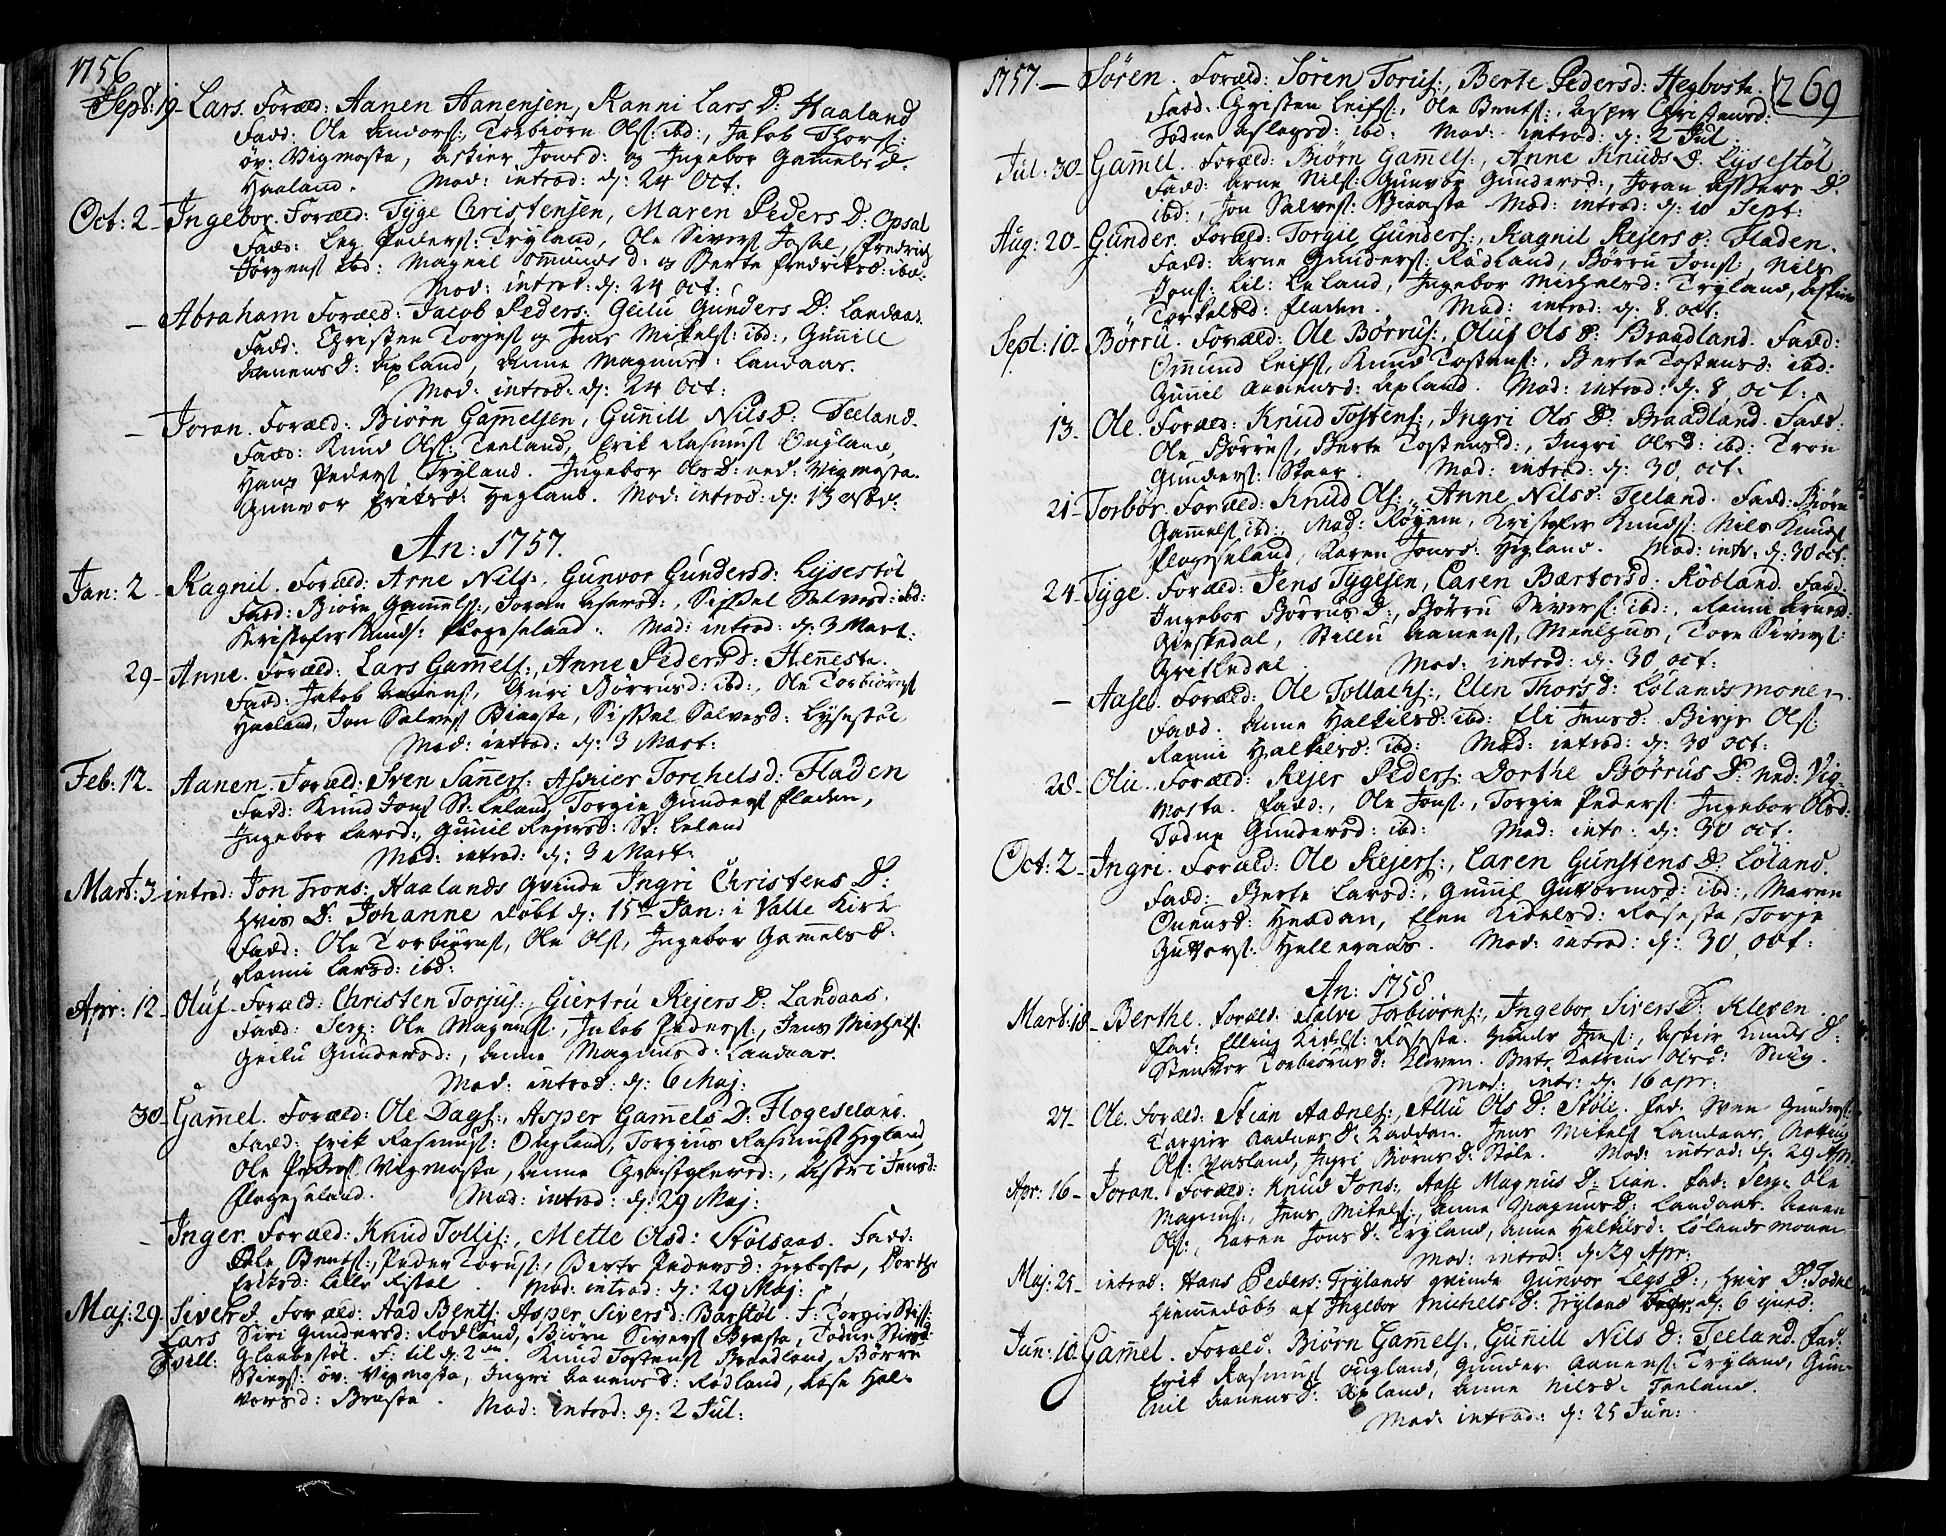 1756
Sept: 19 - Lars. Foræld: Aanen Aanensen, Ranni Lars D: Haaland
Fadd: Ole Andors:, Torbiørn Ols: ibd:, Jakob Thors:
ov: Vigmosta, Jonsd: og Ingebor Gamels D.
Haaland. Mod: introd: d: 24 Oct:
Oct: 2 - Ingebor. Foræld: Tÿge Christensen, Maren Peders D: Opsal
Fadd: Leg Peders: Trÿland, Ole Sivers Fredrich
Jørgens ibd: Magnil Ommunds D: og Berte Fredriksd: ibd:
Mod: introd: d: 24 Oct:
- Abraham Foræld: Jacob Peders: Geilu Gunders D: Landaas.
Fadd: Christen Torjus: og Jens Mikels: ibd:, Gunill
Aanens D: Apland, Anne Magnusd: Landaas.
Mod: introd: d: 24 Oct:
- Joran. Foræld: Biørn Gamelsen, Gunill Nilsd: Teeland.
Fadd: Knud Ols: Teeland, Erik Rasmus: Ougland,
Hans Peders: Trÿland. Ingebor Ols D: ned. Vigmosta.
Gunvor Eriksd: Hegland. Mod: introd: d: 13
An: 1757.
Jan: 2 - Ragnil. Foræld: Arne Nils:, Gunvor Gundersd: Lÿsestøl
Fadd: Biørn Gamels:, Joran Assersd:, Sissel Salvesd: ibd:
Kristofer Knuds: Flogeseland. Mod: introd: d: 3 Mart:
29 - Anne. Foræld: Lars Gamels:, Anne Pedersd: Henesta.
Fadd: Jakob Guri Børrusd: ibd:, Ole Torbiørns:
Haaland, Jon Salves: Biaasta, Sissel Salvesd: Lÿsestøl.
Mod: introd: d: 3 Mart:
Feb: 17 - Aanen. Foræld: Sven Saners: Torchelsd: Fladen
Fadd: Knud Jons: St: Leland, Torgie Gunders: Fladen,
Ingebor Larsd:, Gunil Rejersd: St: Leland
Mod: introd: d: 3 Mart:
Mart: 3 - introd: Jon Trons: Haalands Qvinde Ingri Christens D:
Hvis D: Johanne døbt d: 15de Jan: i Valle Kirk
Fadd: Ole Torbiørns:, Ole Ols:, Ingebor Gamels D:
Ranni Larsd: ibd:
Apr: 12 - Oluf. Foræld: Christen Torjus:, Giertru Rejers D: Landaas.
Fadd: Serg: Ole Magnus:, Jakob Peders:, Jens Michels:
Geilu Gundersd:, Anne Magnusd: Landaas.
Mod: introd: d: 6 Maj:
30 - Gamel. Foræld: Ole Dags:, Asper Gamels D: Flogeseland.
Fadd: Erik Rasmus: Ougland, Torgius Rasmus: Hegland
Ole Peders: Vigmosta, Anne Christofersd:, Astri Jensd:
Flogeseland. Mod: introd: d: 29 Maj:
- Inger. Foræld: Knud Tollis:, Mette Olsd: Stølsaas. Fadd:
Ole Bents:, Peder Torus:, Berte Pedersd: Hegbosta, Dorthe
Eriksd: Lille Mod: introd: d: 29 Maj:
Maj: 29. Sivert Foræld: Aad Bents: Asper Sivers D: Barstøl. F: Torgie
Lars Siri Gundersd: Rødland, Biørn Sivers: Brasta, Todne
Tvill: F: til d: 2den. Knud Tostens: Braadland, Børru
ov: Vigmosta, Ingri Aanensd: Rødland, Aase Hal-
vorsd: Brasta. Mod: introd: d: 2 Jul:
1757 - Søren. Foræld: Søren Torus:, Berte Pedersd: Hegboste. 269
Fadd: Christen Leifs:, Ole Bents:, Asper Christensd:
Todne Aslagsd: ibd: Mod: introd: d: 2 Jul
Jul: 30 - Gamel. Foræld: Biørn Gamels:, Anne Knuds D: Lÿsestøl
Fadd: Arne Nils: Gunvor Gundersd:, Joran Assers D:
ibd:, Jon Salves: Biaasta Mod: introd: d: 10 Sept:
Aug: 20 - Gunder. Foræld: Torgie Gunders:, Ragnil Rejers D: Fladen.
Fadd: Arne Gunders: Rødland, Børru Jons:, Nils
Jons: Lil: Leland, Ingebor Michelsd: Trÿland,
Torkelsd: Fladen. Mod: introd: d: 8 oct:
Sept: 10 - Børru. Foræld: Ole Børrus:, Oluf Ols D: Braadland. Fadd:
Ommund Leifs:, Knud Tostens:, Berte Tostensd: ibd:
Gunil Aanensd: Apland. Mod: introd: d: 8 oct:
13 - Ole. Foræld: Knud Tostens:, Ingri Ols D: Braadland. Fadd:
Ole Børrus:, Berte Tostensd:, Ingri Olsd: ibd: Tron
Gunders: Skaar. Mod: introd: d: 30 oct:
21 - Torbor. Foræld: Knud Ols:, Anne Nilsd: Teeland. Fadd: Biørn
Gamels: ibd:, Mad: Røyem, Kristofer Knuds: Nils Knuds:
Flogeseland, Karen Jonsd: Higland. Mod: intr: d: 30 oct:
24 - Tÿge. Foræld: Jens Tÿgesen, Caren Bærtorsd: Rødland. Fadd:
Ingebor Børrus D:, Børru Sivers: ibd:, Ranni
Giskedal, Stillu Aanens:, Tore Sivers:
Griskedal. Mod: introd: d: 30 oct:
- Aase. Foræld: Ole Tollachs:, Elen Thorsd: Lølandsmonen.
Fadd: Anne Halkilsd: ibd: Eli Jensd: Birge Ols:
Ranni Halkilsd: ibd: Mod: introd: d: 30 oct:
28 - Oliv. Foræld: Rejer Peders: Dorthe Børrus D: ned: Vig-
mosta. Fadd:, Ole Jons:, Torgie Peders: Ingebor Olsd:
Todne Gundersd: ibd: Mod: intr: d: 30 oct:
Oct: 2 - Ingri. Foræld: Ole Rejers:, Caren Gunstens D: Løland.
Fadd: Berte Larsd:, Gunil Guttormsd: ibd:, Maren
Onensd: Headan, Elen Kidelsd: Røsesta, Torje
Guttors: Hellegaas. Mod: introd: d: 30 oct:
An: 1758.
Mart: 18 - Berthe. Foræld: Salve Torbiørns:, Ingebor Sivers D: Kleven.
Fad: Elling Kidels: Røsesta. Gunder Jens:, Knuds D:
Stenvor Torbiørnsd: Kleven. Berte Katrine Olsd:
Mod: intr: d: 16 apr:
27 - Ole. Foræld: Stian Aadnes:, Allu Ols D: Støle. Fad: Sven Gunders:
Torgier Aadnes D: Laddan. Jens Mikels: Landaas,
Ols: Ingri Biørns D: Støle. Mod: introd: d: 29 Apr:
Apr: 16 - Joran. Foræld: Knud Jons:, Aase Magnus D: Lian. Fad: Serg: Ole
Magnus:, Jens Mikels:, Anne Magnusd: Landaas. Aanen
Ols:, Karen Jons D: Trÿland, Anne Halkilsd: Lølands monen
Mod: introd: d: 29 Apr:
Maj: 25 - introd: Hans Peders: Trÿlands qvinde Gunvor Legs D:, hvis D: Todne
Hiemmedøbt af Ingebor Michels D: Trÿland d: 6 ejusd:
Jun: 10 Gamel. Foræld: Biørn Gamels:, Gunill Nils D: Teeland. Fad:
Erik Rasmus: Ougland, Gunder Aanens: Trÿland, Gun-
nil Aanens D: Apland, Anne Nilsd: Teeland.
Mod: introd: d: 25 Jun: